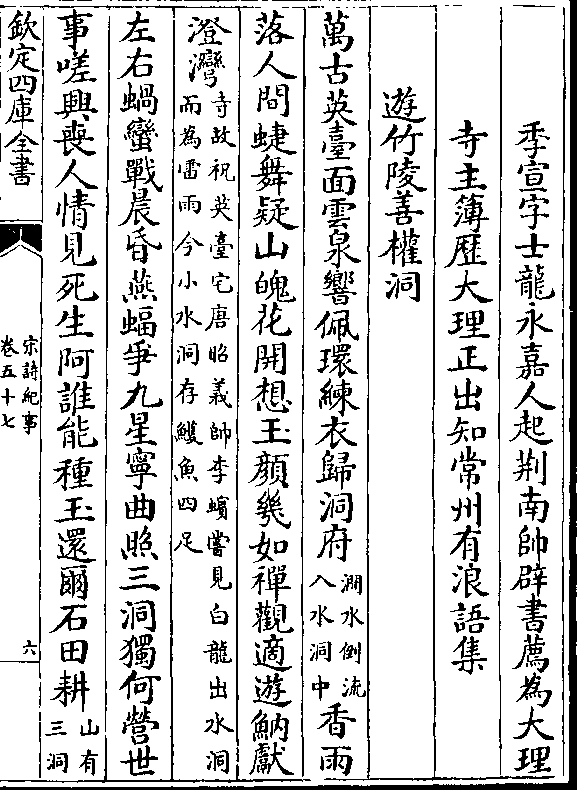 季宣字士龍永嘉人起荆南帥辟書薦為大理
寺主簿歴大理正出知常州有浪語集
遊竹陵善權洞
萬古英臺面雲泉響佩環練衣歸洞府澗水倒流入水洞中香雨
落人間蜨舞疑山魄花開想玉顔幾如禪觀適遊魶獻
澄灣寺故祝英臺宅唐昭義帥李蠙嘗見白龍出水洞而為雷雨今小水洞存鱯魚四足
左右蝸蠻戰晨昏燕蝠爭九星寧曲照三洞獨何營世
事嗟興喪人情見死生阿誰能種玉還爾石田耕山有三洞
欽定四庫全書
宋詩紀事
卷五十七
六